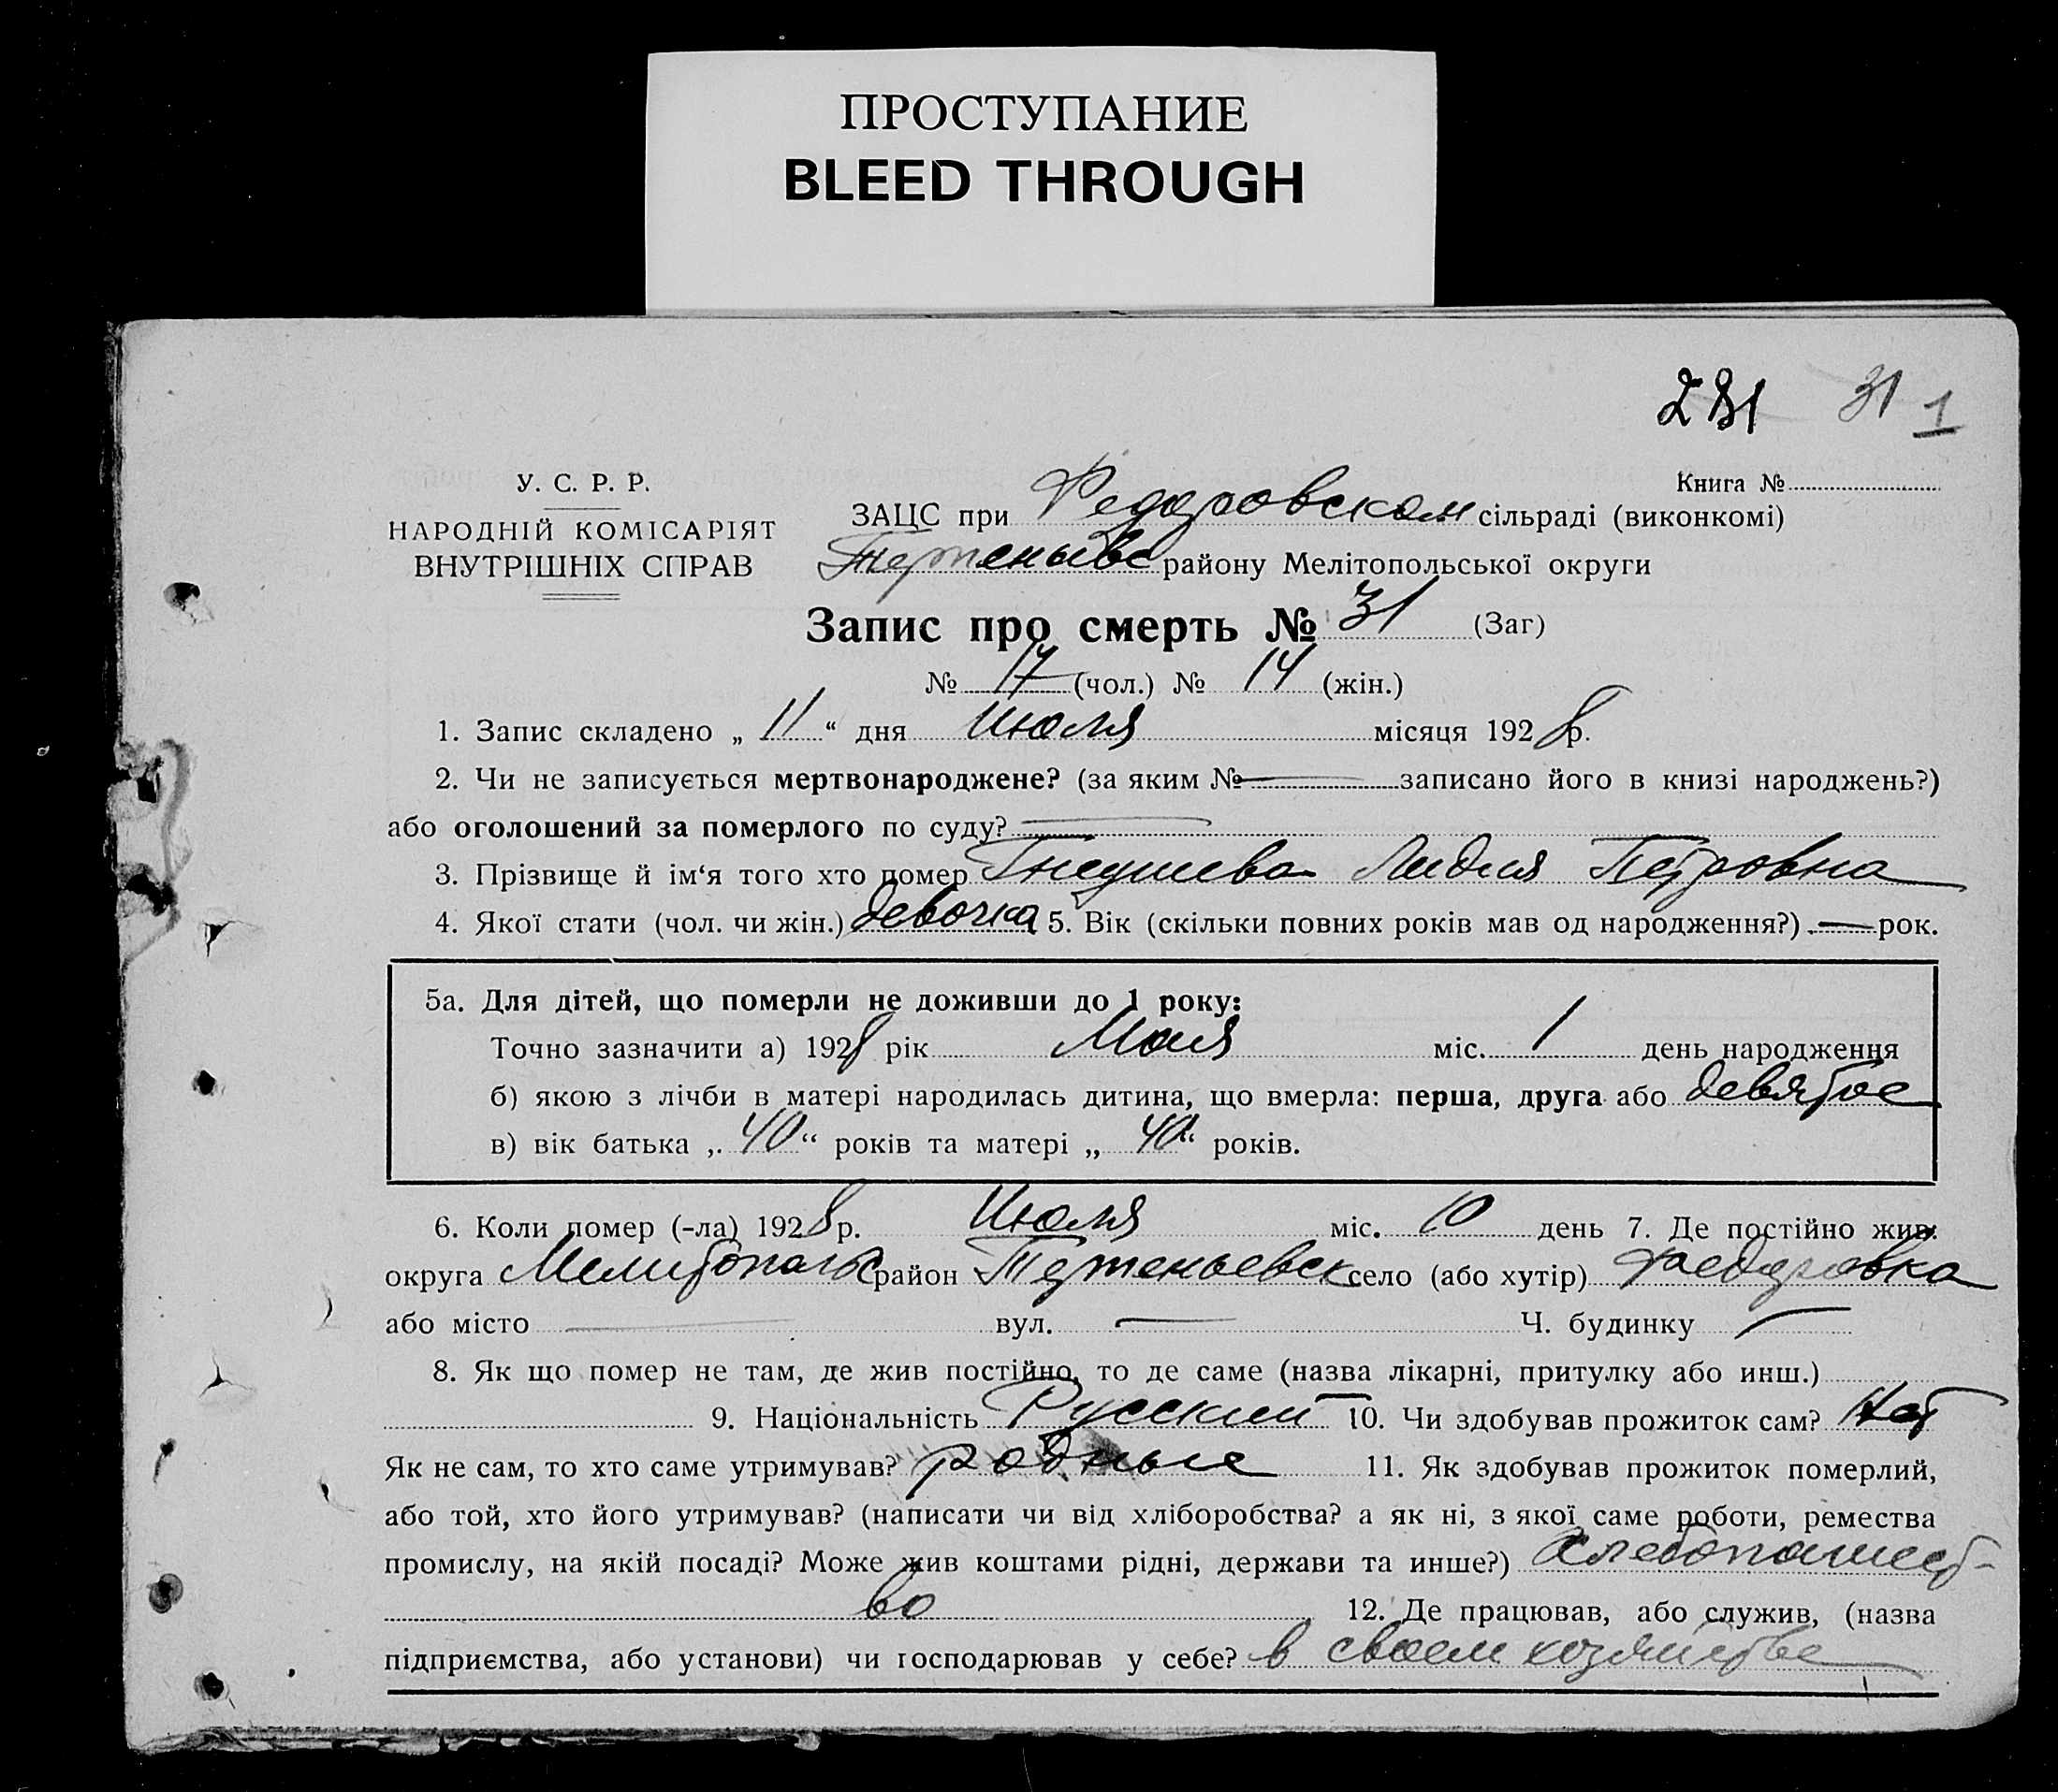 ПРОСТУПАНИЕ
BLEED THROUGH
281 31 1
У. С. Р. Р.
НАРОДНІЙ КОМІСАРІЯТ
ВНУТРІШНІХ СПРАВ
Книга №
ЗАЦС при Федоровском сільраді (виконкомі)
району Мелітопольської округи
Запис про смерть № 31 (Заг)
№ 17 (чол.) № 14 (жін.)
1. Запис складено „ 11 “ дня Июля місяця 1928 р.
2. Чи не записується мертвонароджене? (за яким № — записано його в книзі народжень?)
або оголошений за померлого по суду? —
3. Прізвище й ім‘я того хто помер Гнеушева Лидия Петровна
4. Якої стати (чол. чи жін.) девочка 5. Вік (скільки повних років мав од народження?) — рок.
5а. Для дітей, що померли не доживши до 1 року:
Точно зазначити а) 1928 рік Мая міс. 1 день народження
б) якою з лічби в матері народилась дитина, що вмерла: перша, друга або девятое
в) вік батька „ 40 “ років та матері „ 40 “ років.
6. Коли помер (-ла) 1928 р. Июля міс. 10 день 7. Де постійно жив:
округа Мелитопольс район село (або хутір) Федоровка
або місто — вул. — Ч. будинку —
8. Як що помер не там, де жив постійно, то де саме (назва лікарні, притулку або инш.)
9. Національність Русский 10. Чи здобував прожиток сам? Нет
Як не сам, то хто саме утримував? родные 11. Як здобував прожиток померлий,
або той, хто його утримував? (написати чи від хліборобства? а як ні, з якої саме роботи, ремества
промислу, на якій посаді? Може жив коштами рідні, держави та инше?) Хлебопашест-
во 12. Де працював, або служив, (назва
підприємства, або установи) чи господарював у себе? в своем хозяйстве